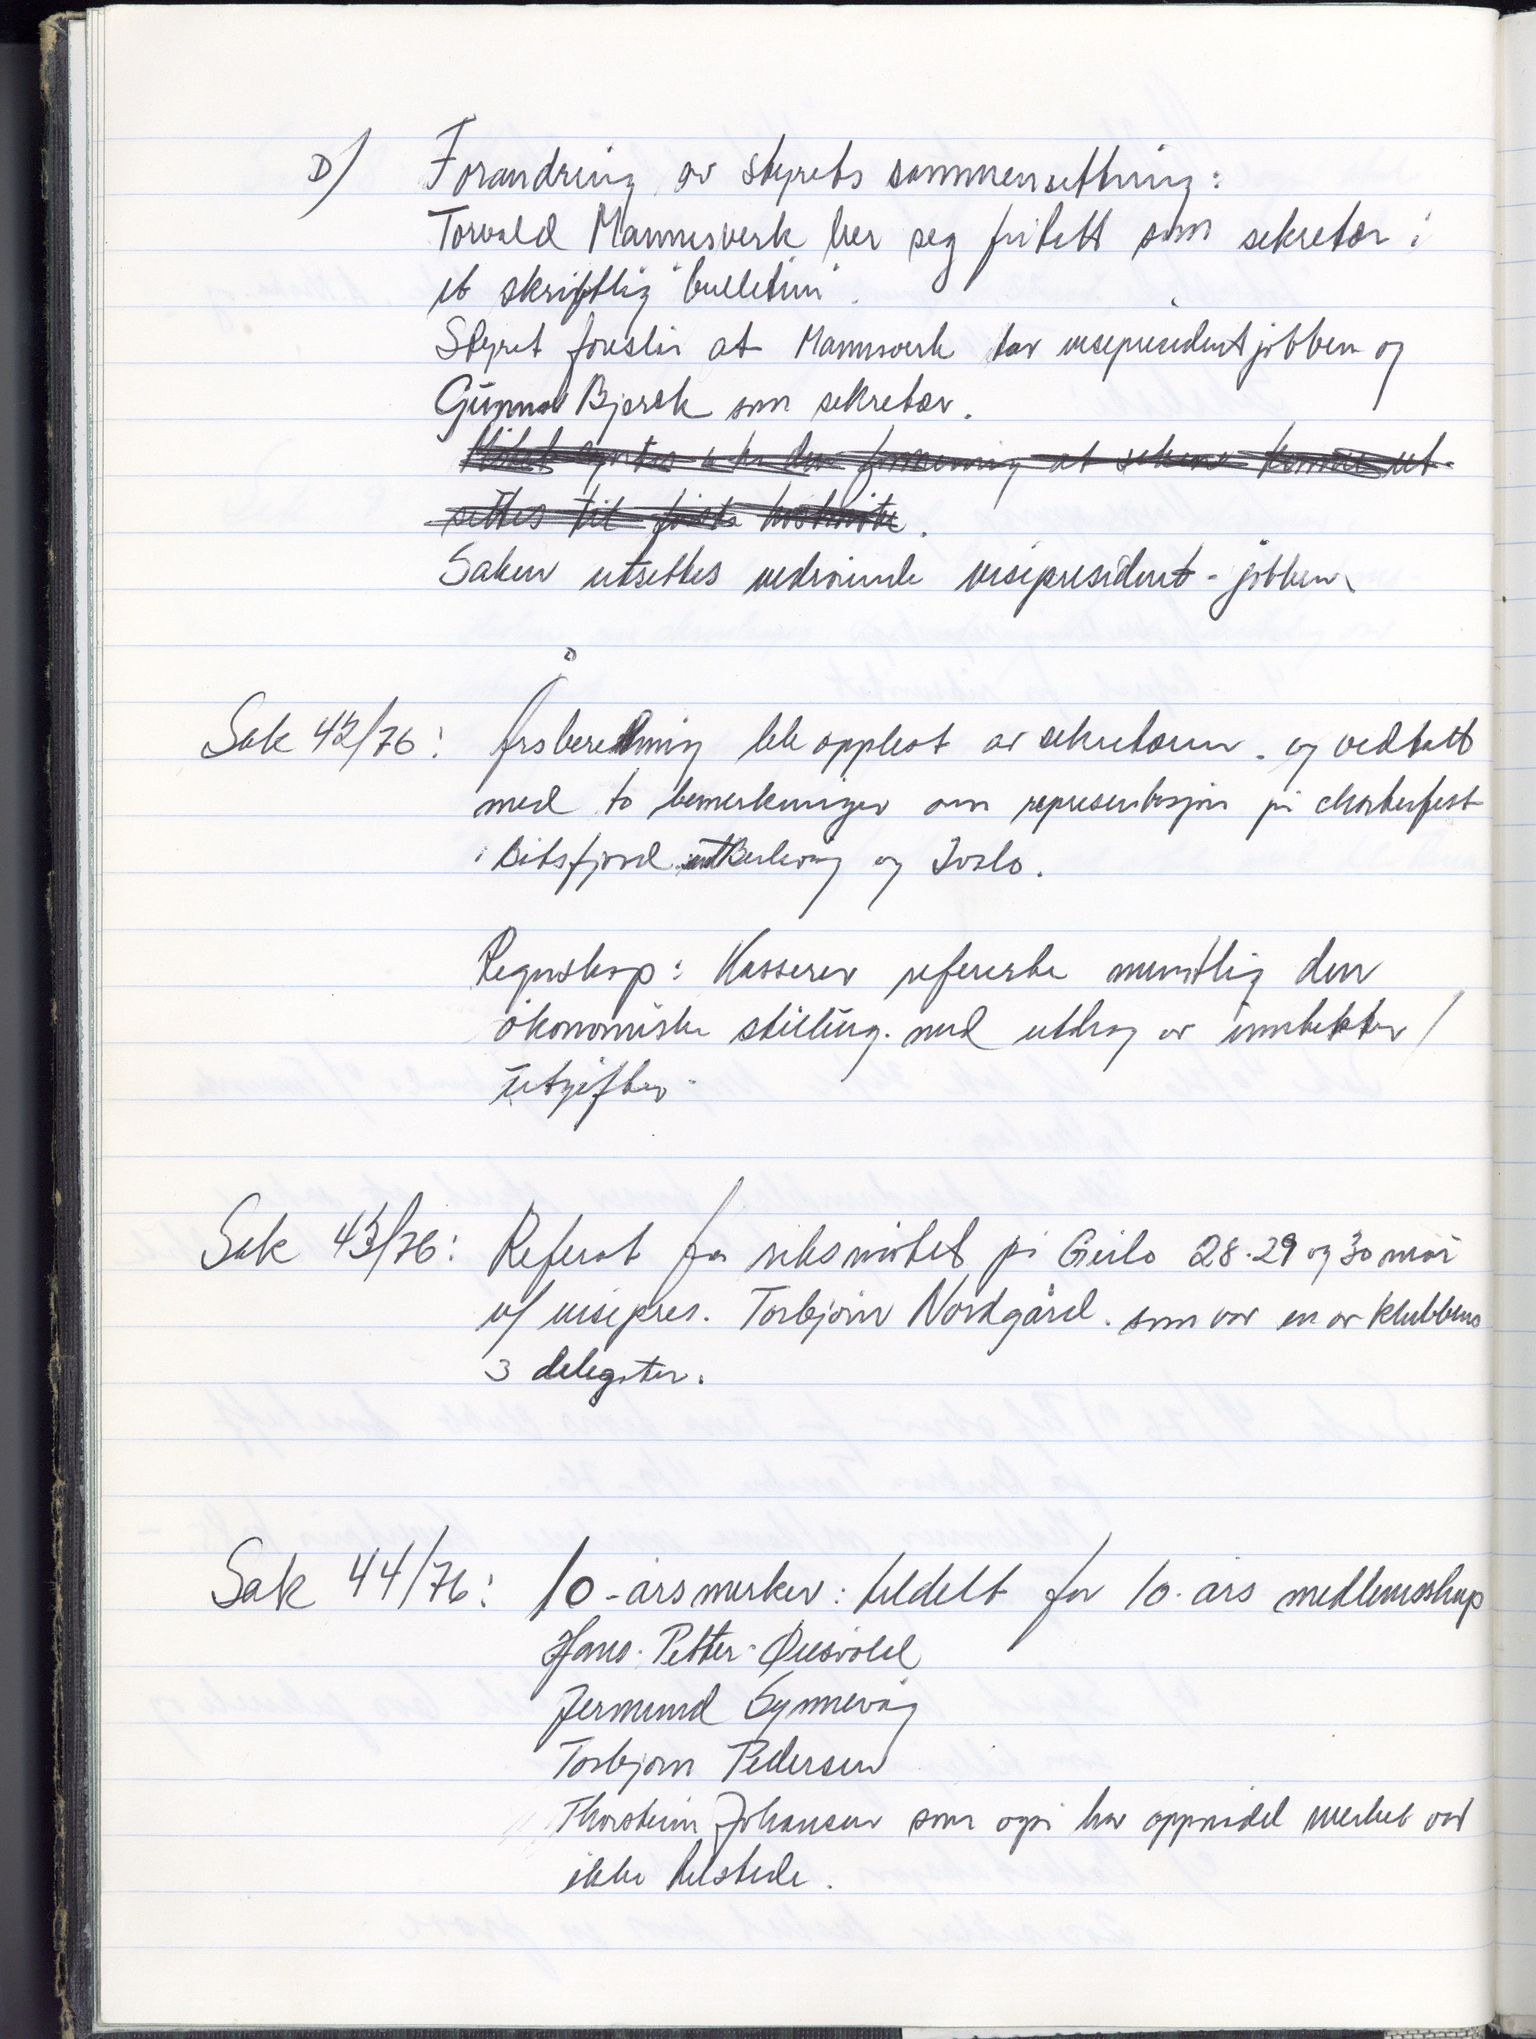 D/ Forandring av styrets sammensetning:
Torvald Mannsverk ber seg fritatt som sekretær i
et skriftlig "bulletin".
Styret foreslår at Mannsverk tar visepresidentjobben og
Gunnar Bjørck som sekretær.
at sakene ut-
settes til første høstmøte.
Saken utsettes vedrørende visepresident-jobben.
Sak 42/76: Årsberetning ble opplest av sekretæren. og vedtatt
med to bemerkninger om representasjon på charterfest
i Båtsfjord Berlevåg og Ivalo.
Regnskap: Kasserer refererte muntlig den
økonomiske stilling. med utdrag av inntekter /
utgifter.
Sak 43/76: Referat fra riksmøtet på Geilo 28. 29 og 30 mai
v/ visepres. Torbjørn Nordgård. som var en av klubbens
3 delegater.
Sak 44/76: 10-års merker: tildelt for 10. års medlemsskap
Hans-Petter Øiesvold
Jermund Synnevåg
Torbjørn Pedersen
Thorstein Johansen som også har oppnådd merket var
ikke tilstede.